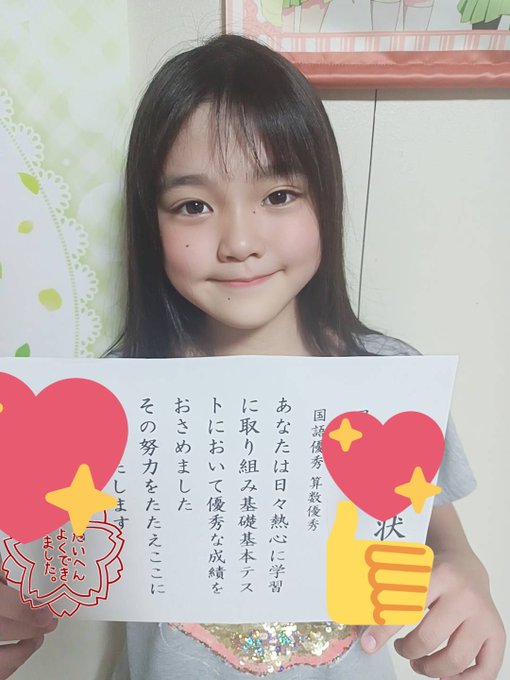 状
国語優秀 算数優秀
あなたは日々熱心に学習
に取り組み基礎基本テス
トにおいて優秀な成績を
おさめました
その努力をたたえここに
たします
たいへん
よくでき
ました。